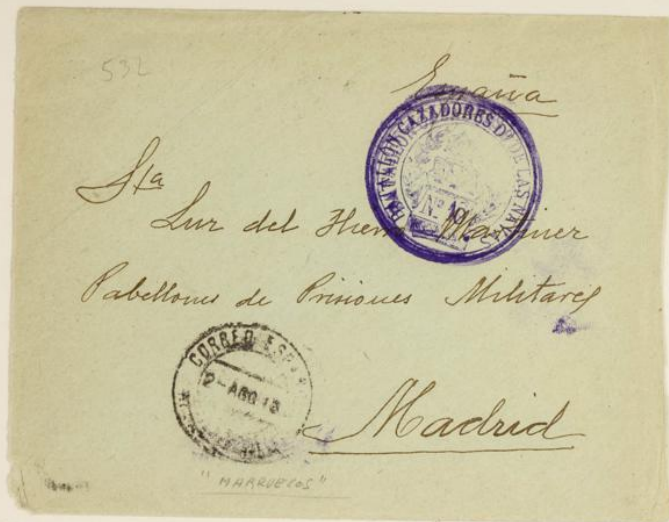 532
España
BATALLON CAZADORES DE LAS NAVAS
Nº 10
Sta
Luz del Hierro Mariner
Pabellones de Prisiones Militares
CORREO ESPAÑ
2-AGO 13
Madrid
"MARRUECOS"